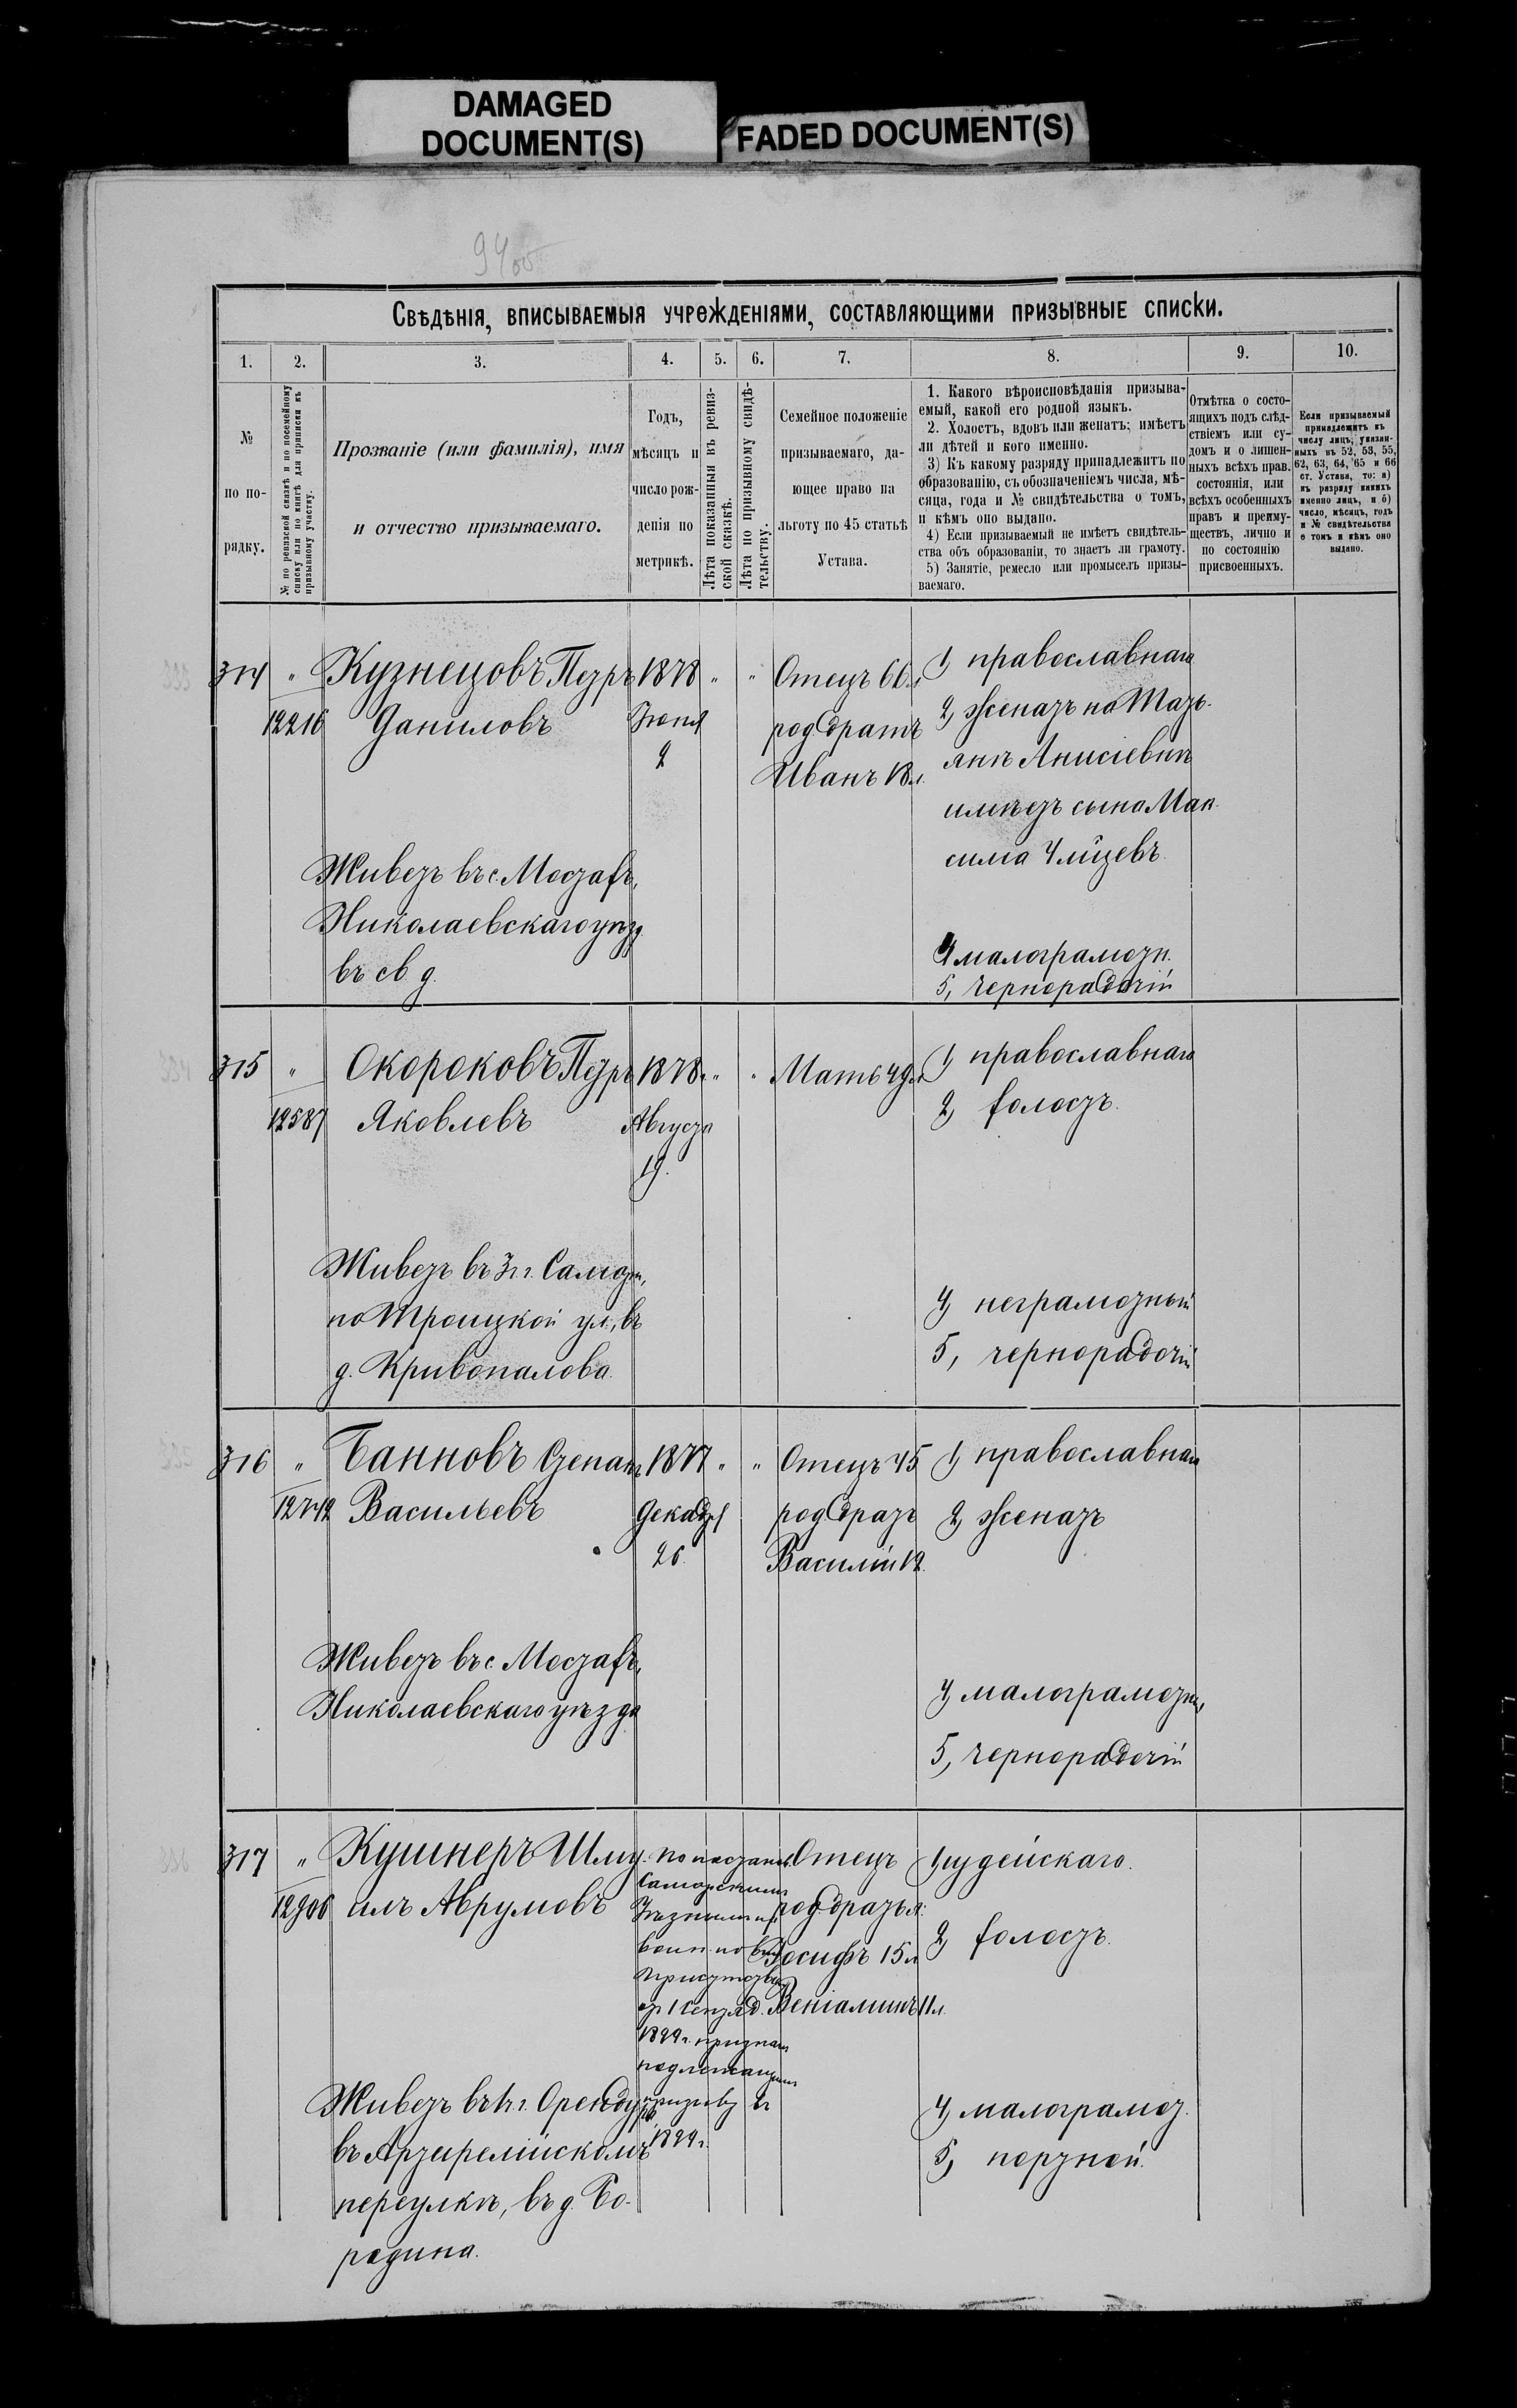 DAMAGED
DOCUMENT(S)
FADED DOCUMENT(S)
Свѣдѣнія, вписываемыя учрежденіями, составляющими призывные списки.
1.
2.
3.
4.
5.
6.
7.
8.
9.
10.
№
по по-
рядку.
№ по ревизской сказкѣ и по посемейному
списку или по книгѣ для приписки къ
призывному участку.
Прозваніе (или фамилія), имя
и отчество призываемаго.
Годъ,
мѣсяцъ и
число рож-
денія по
метрикѣ.
Лѣта показанныя въ ревиз-
ской сказкѣ.
Лѣта по призывному свидѣ-
тельству.
Семейное положеніе
призываемаго, да-
ющее право на
льготу по 45 статьѣ
Устава.
1. Какого вѣроисповѣданія призыва-
емый, какой его родной языкъ.
2. Холостъ, вдовъ или женатъ; имѣетъ
ли дѣтей и кого именно.
3) Къ какому разряду принадлежитъ по
образованію, съ обозначеніемъ числа, мѣ-
сяца, года и № свидѣтельства о томъ,
и кѣмъ оно выдано.
4) Если призываемый не имѣетъ свидѣтель-
ства объ образованіи, то знаетъ ли грамоту.
5) Занятіе, ремесло или промыселъ призы-
ваемаго.
Отмѣтка о состо-
ящихъ подъ слѣд-
ствіемъ или су-
домъ и о лишен-
ныхъ всѣхъ прав.
состоянія, или
всѣхъ особенныхъ
правъ и преиму-
ществъ, лично и
по состоянію
присвоенныхъ.
Если призываемый
принадлежитъ къ
числу лицъ, указан-
ныхъ въ 52, 53, 55,
62, 63, 64, 65 и 66
ст. Устава, то: а)
къ разряду какихъ
именно лицъ, и б)
число, мѣсяцъ, годъ
и № свидѣтельства
о томъ и кѣмъ оно
выдано.
314 " Кузнецовъ Петръ 1878 " " Отецъ 60 л 1, православнаго
12216 Даниловъ Іюня род. братъ 2, женатъ на Тать-
2 Иванъ 18 л. янѣ Анисіевнѣ
имѣетъ сына Мак-
сима
Живетъ въ с. Мостахъ,
Николаевскаго уѣзд.
въ св. д.
4 малограмотн.
5, чернорабочій
315 " Окороковъ Петръ 1878 г. " " Мать 49 л 1, православнаго
12587 Яковлевъ Августа 2, холостъ.
19.
Живетъ въ г. Самарѣ,
по Троицкой ул., въ
д. Кривопалова.
4, неграмотный
5, чернорабочій
316 " Банновъ Степанъ 1877 " " Отецъ 45 1, православнаго
12742 Васильевъ Декабря род. братъ 2, женатъ
26. Василій 12.
Живетъ въ с. Мостахъ,
Николаевскаго уѣзда
4, малограмотн.
5, чернорабочій
317 " Кушнеръ Шму- По постанов. Отецъ 1, іудейскаго.
12906 илъ Аврумовъ Самарскаго род. братья:
Уѣзднаго по
воин. пов. Іосифъ 15 л 2, холостъ.
Присутствія
от 1 Сентяб. Веніаминъ 11 л.
1899 г. признанъ
подлежащимъ
призыву въ
1899 г.
Живетъ въ г. Оренбургѣ
въ
переулкѣ, въ д. Бо-
родина.
4, малограмот.
5, портной.